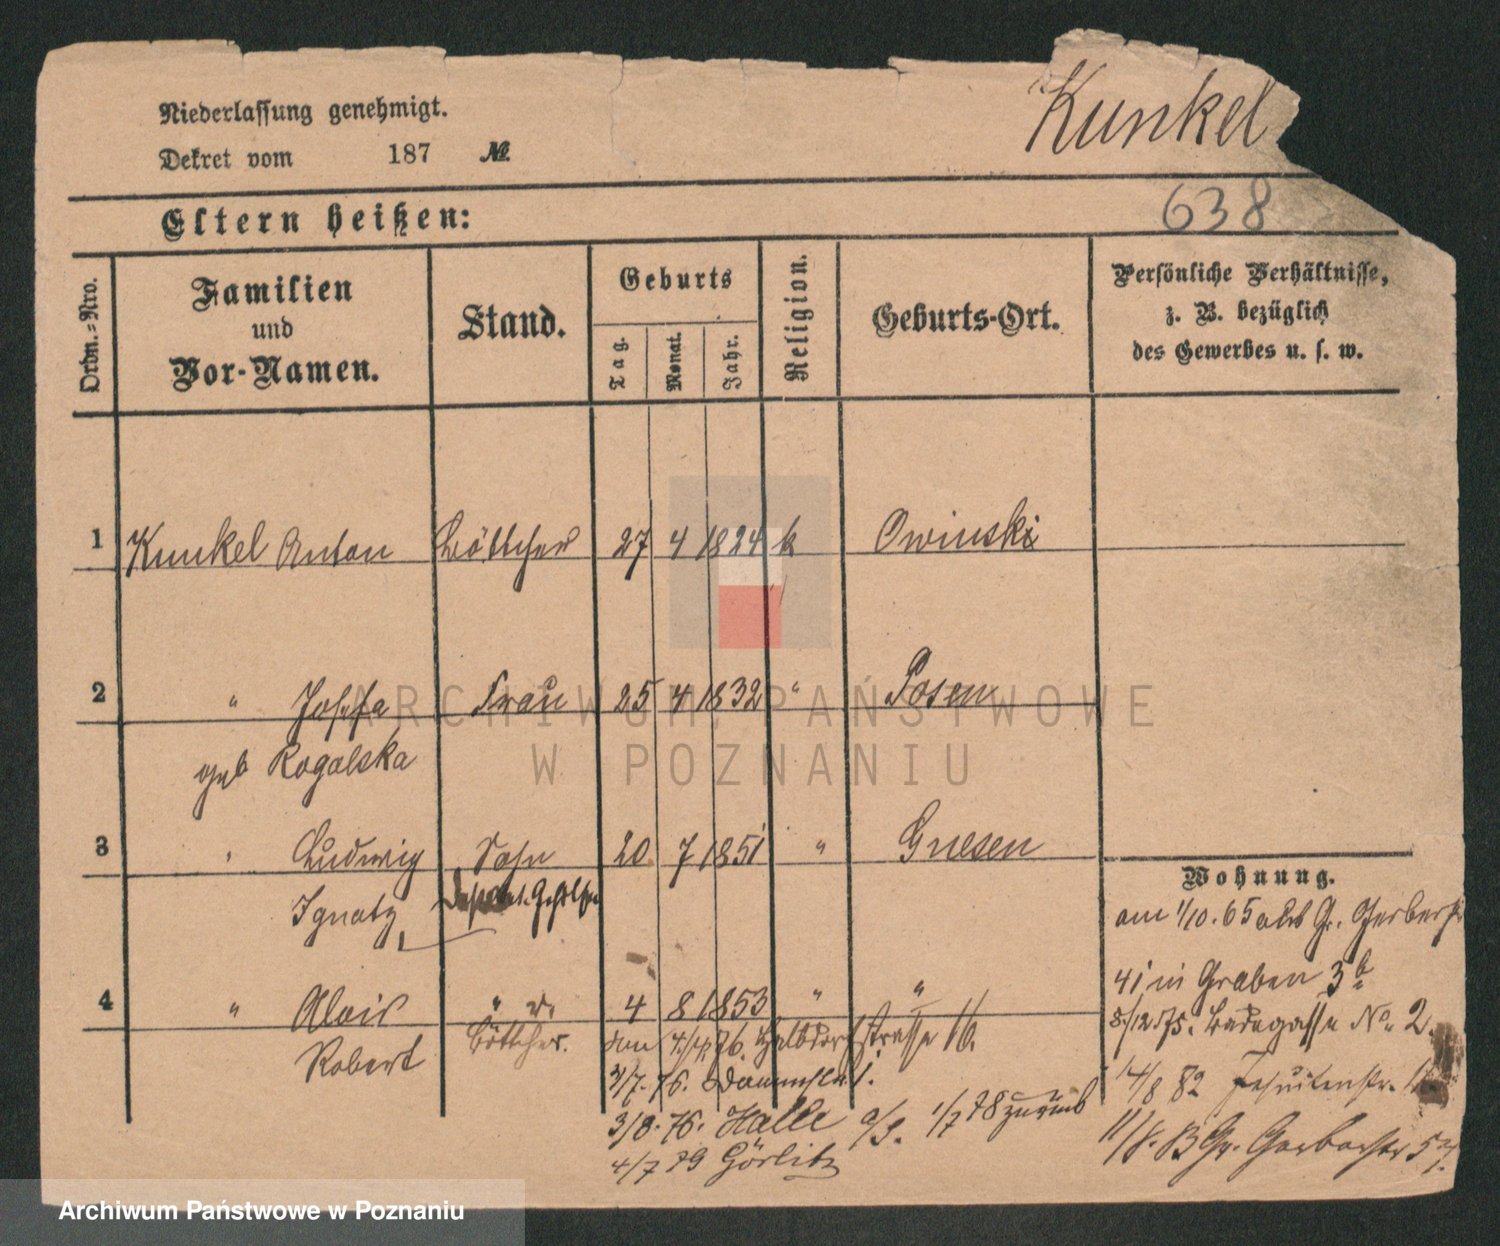 Niederlassung genehmigt.
Kunkel
Dekret vom 187 №
638
Eltern heißen:
Ordn.=Nro.
Familien
und
Vor-Namen.
Stand.
Geburts
Tag.
Monat.
Jahr.
Religion.
Geburts-Ort.
Persönliche Verhältnisse,
z. B. bezüglich
des Gewerbes u. s. w.
1 Kunkel Anton Böttcher 27 4 1824 k Owinski
2 " Josefa Frau 25 4 1832 " Posen
geb Rogalska
3 " Ludwig Sohn 20 7 1851 " Gnesen
Ignatz
4 " Alois " 4 8 1853 " "
Robert Böttcher.
Wohnung.
am 1/10. 65 Gr. Gerberst
41 in Graben 3b
8/12.75. Badegasse No. 2.
14/8 82 Jesuitenstr.
11/8. Gr. Gerberstr
76. Halbdorfstrasse 16.
3/7. 76.
3/8. 76. Halle a/S. 1/7 78 zurück
4/7 79 Görlitz
ARCHIWUM PAŃSTWOWE
W POZNANIU
Archiwum Państwowe w Poznaniu